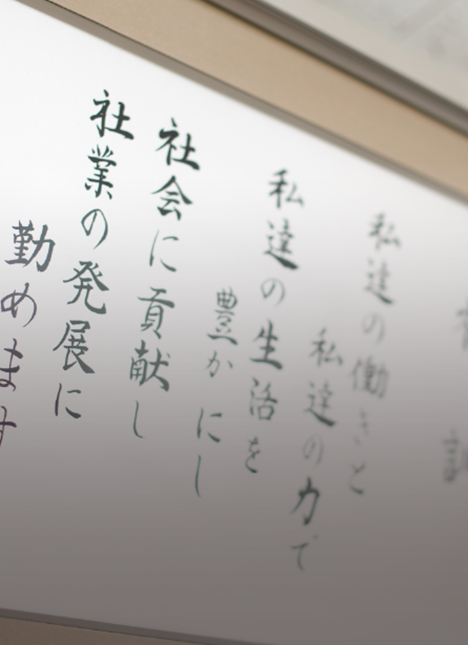 私達の働きと
私達の力で
私達の生活を
豊かにし
社会に貢献し
社業の発展に
勤めます